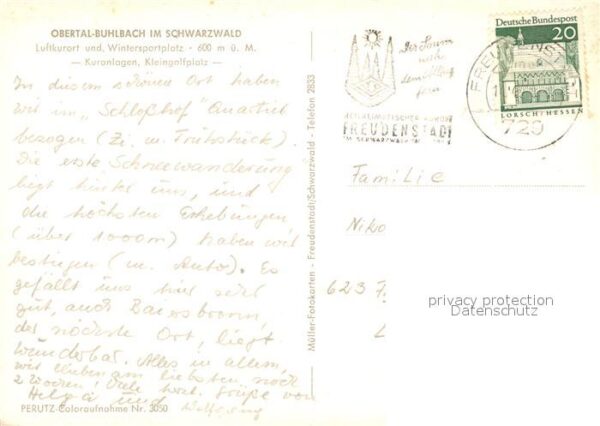 OBERTAL-BUHLBACH IM SCHWARZWALD
Luftkurort und Wintersportplatz - 600 m ü. M.
— Kuranlagen, Kleingolfplatz —
In diesem schönen Ort haben
wir im „Schloßhof" Quartier
bezogen (Zi. m. Frühstück).
Die erste Schneewanderung
liegt hinter uns, und
die höchsten Erhebungen
(über 1000m) haben wir
bestiegen (m. Auto). Es
gefällt uns hier sehr
gut, auch Baiersbronn,
der nächste Ort, liegt
wunderbar. Alles in allem,
wir blieben am liebsten noch
2 Wochen! Viele Grüße von
Helga und
PERUTZ-Coloraufnahme Nr. 3050
Müller-Fotokarten - Freudenstadt/Schwarzwald - Telefon 2833
HEILKLIMATISCHER KURORT
FREUDENSTADT
IM SCHWARZWALD
FREUDENSTADT
729
Deutsche Bundespost
20
LORSCH/HESSEN
Familie
Niko
623 F.
privacy protection
Datenschutz